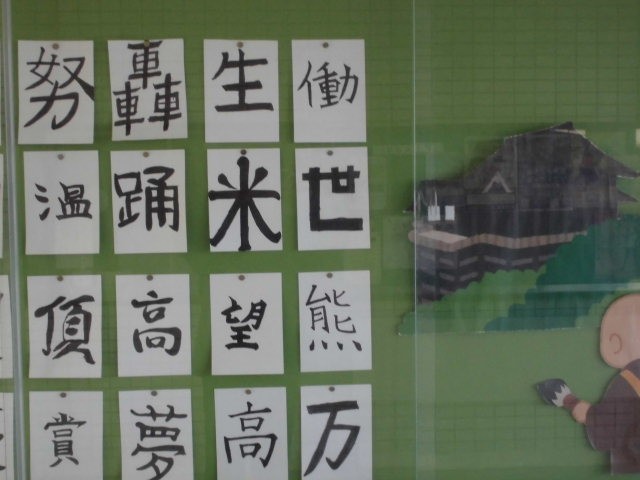 努 轟 生 働
温 踊 米 世
頂 高 望 熊
賞 夢 高 万